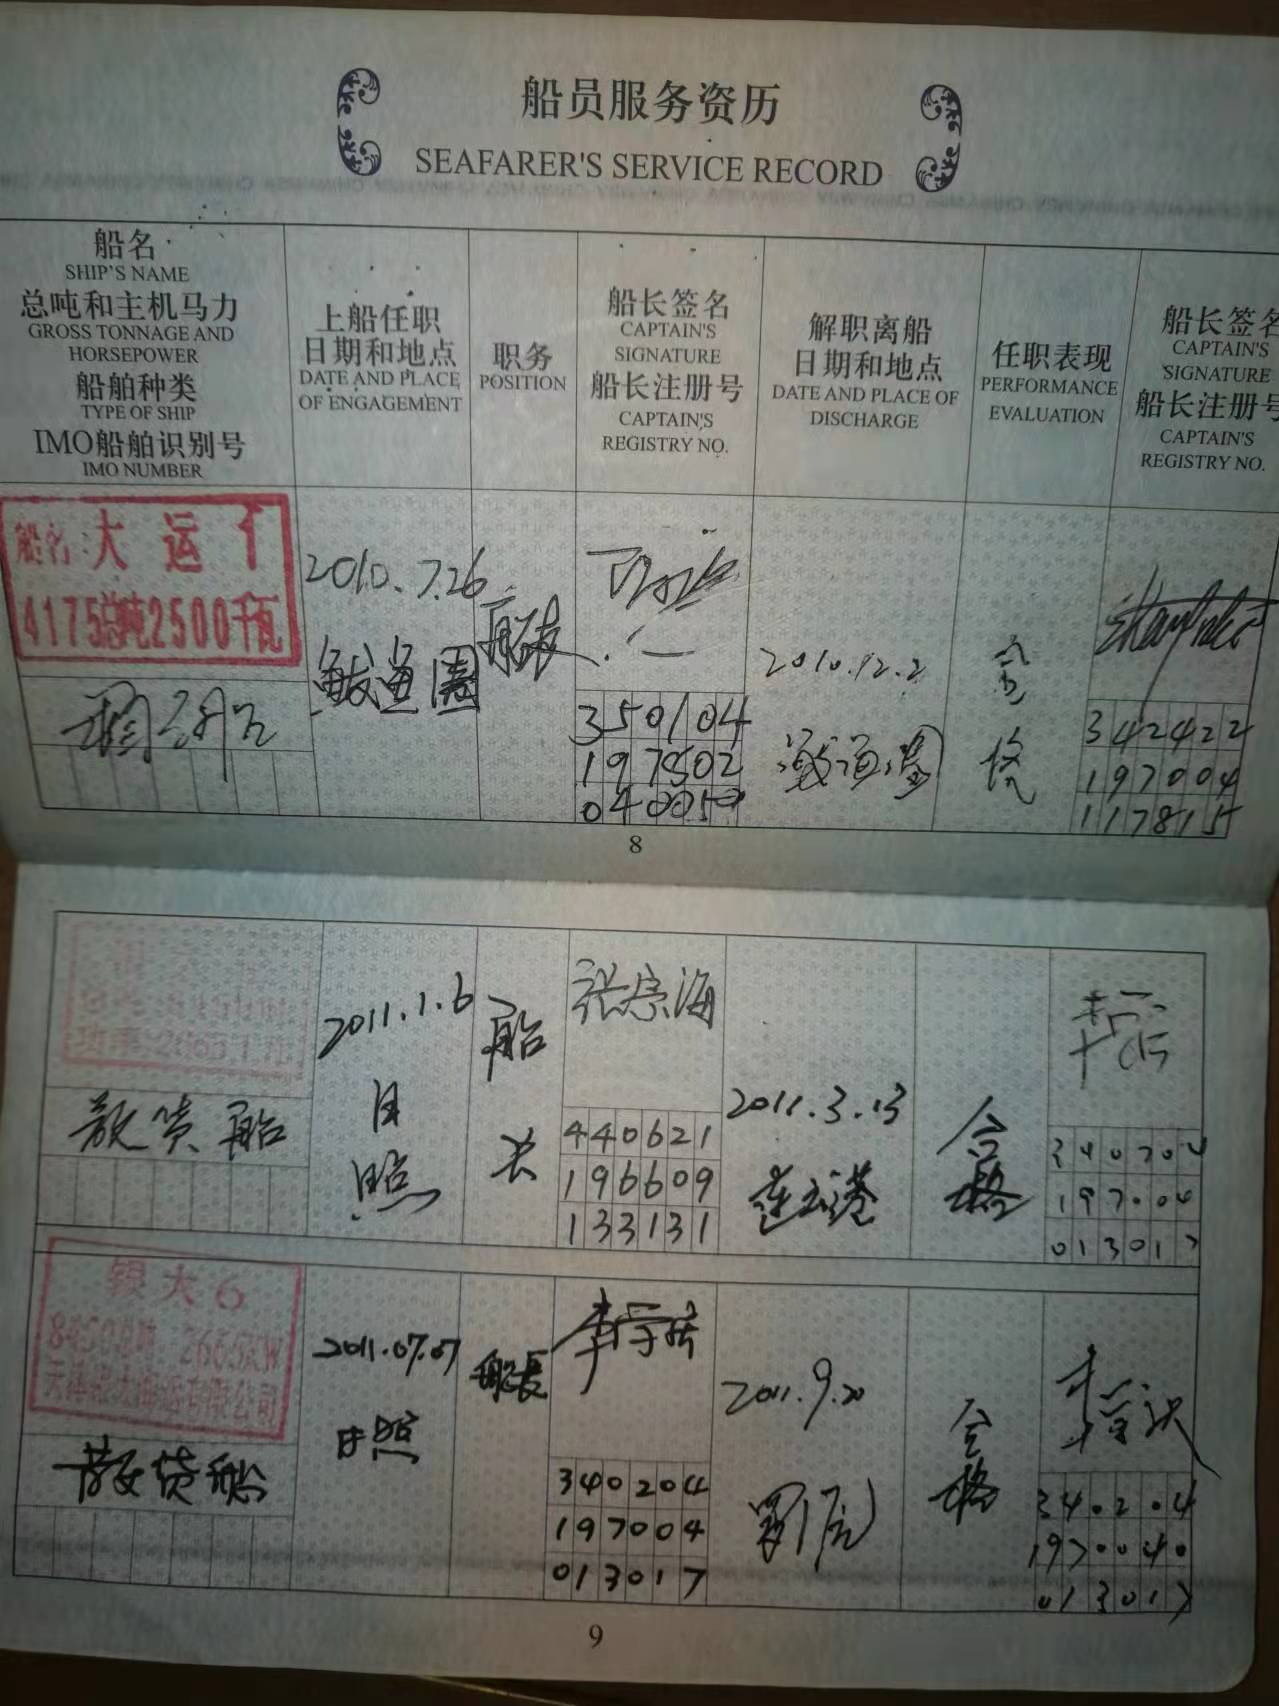 船员服务资历
SEAFARER'S SERVICE RECORD
船名
SHIP'S NAME
总吨和主机马力
GROSS TONNAGE AND
HORSEPOWER
船舶种类
TYPE OF SHIP
IMO船舶识别号
IMO NUMBER
上船任职
日期和地点
DATE AND PLACE
OF ENGAGEMENT
职务
POSITION
船长签名
CAPTAIN'S
SIGNATURE
船长注册号
CAPTAIN'S
REGISTRY NO.
解职离船
日期和地点
DATE AND PLACE OF
DISCHARGE
任职表现
PERFORMANCE
EVALUATION
船长签名
CAPTAIN'S
SIGNATURE
船长注册号
CAPTAIN'S
REGISTRY NO.
船名:大运1
4175总吨2500千瓦
2010.7.26
鲅鱼圈
350104
197502
2010.12.2
鲅鱼圈
合格
342422
197004
117815
8
散货船
2011.1.6
日照
船长
张宗海
440621
196609
133131
2011.3.13
连云港
合格
197004
013017
银大6
散货船
2011.07.07
日照
船长
340204
197004
013017
2011.9.20
合格
340204
197004
013017
9